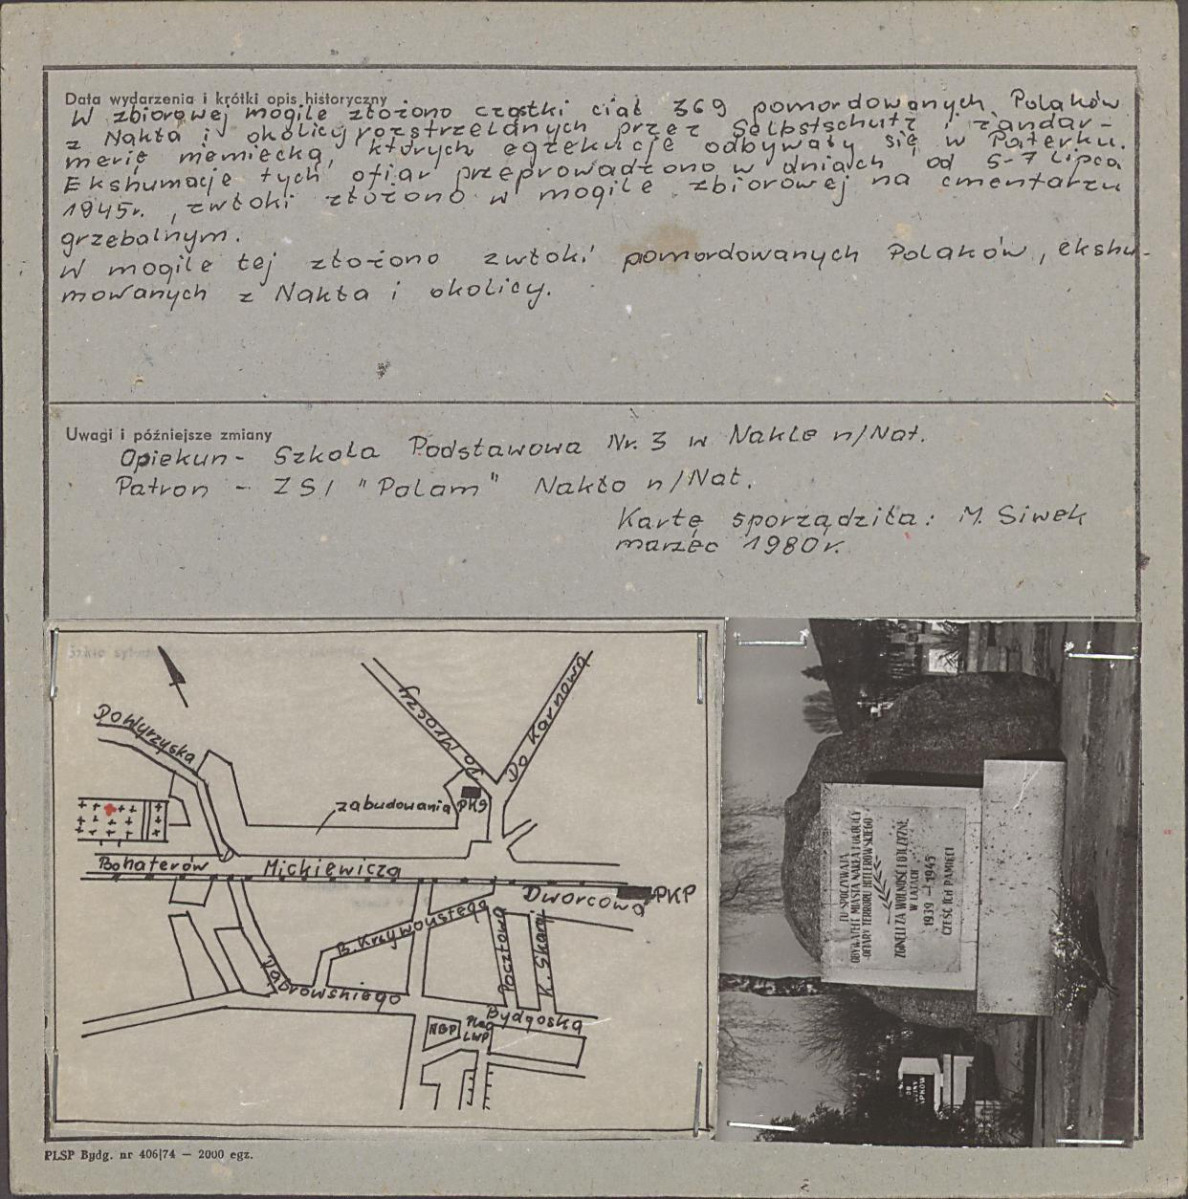 Data wydarzenia i krótki opis historyczny
W zbiorowej mogile złożono cząstki ciał 369 pomordowanych Polaków
z Nakła i okolicy rozstrzelanych przez Selbstschutz i żandar-
merię niemiecką, których egzekucje odbywały się w Paterku.
Ekshumacje tych ofiar przeprowadzono w dniach od 5-7 lipca
1945r., zwłoki złożono w mogile zbiorowej na cmentarzu
grzebalnym.
W mogile tej złożono zwłoki pomordowanych Polaków, ekshu-
mowanych z Nakła i okolicy.
Uwagi i późniejsze zmiany
Opiekun - Szkoła Podstawowa Nr. 3 w Nakle n/Not.
Patron - ZSI "Polam" Nakło n/Not.
Kartę sporządziła: M. Siwek
marzec 1980r.
Do Wyrzyska
Do Mroczy
Do Karnowa
zabudowania
PKS
Bohaterów
Mickiewicza
Dworcowa
PKP
B. Krzywoustego
Pocztowa
K. Skargi
Dąbrowskiego
Bydgoska
NBP
Plac
LWP
TU SPOCZYWAJĄ
OBYWATELE MIASTA NAKŁA I OKOLICY
OFIARY TERRORU HITLEROWSKIEGO
ZGINĘLI ZA WOLNOŚĆ I OJCZYZNĘ
W LATACH
1939 - 1945
CZEŚĆ ICH PAMIĘCI
PLSP Bydg. nr 406/74 — 2000 egz.